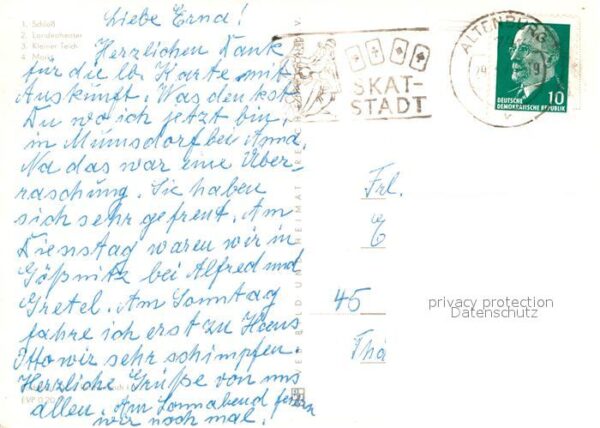 Liebe Erna!
1. Schloß
2. Landestheater
3. Kleiner Teich
4. Markt
Herzlichen Dank
für die lb. Karte mit
Auskunft. Was denkst
Du wo ich jetzt bin,
in Mumsdorf bei Anna,
Na das war eine Über-
raschung. Sie haben
sich sehr gefreut. Am
Dienstag waren wir in
Gößnitz bei Alfred und
Gretel. Am Sonntag
fahre ich erst zu Hans
Otto wir sehr schimpfen.
Herzliche Grüße von uns
allen. Am Sonnabend feiern
wir noch mal.
SKAT-
STADT
ALTENBURG
DEUTSCHE
DEMOKRATISCHE REPUBLIK
10
Frl.
E
45
Thä
privacy protection
Datenschutz